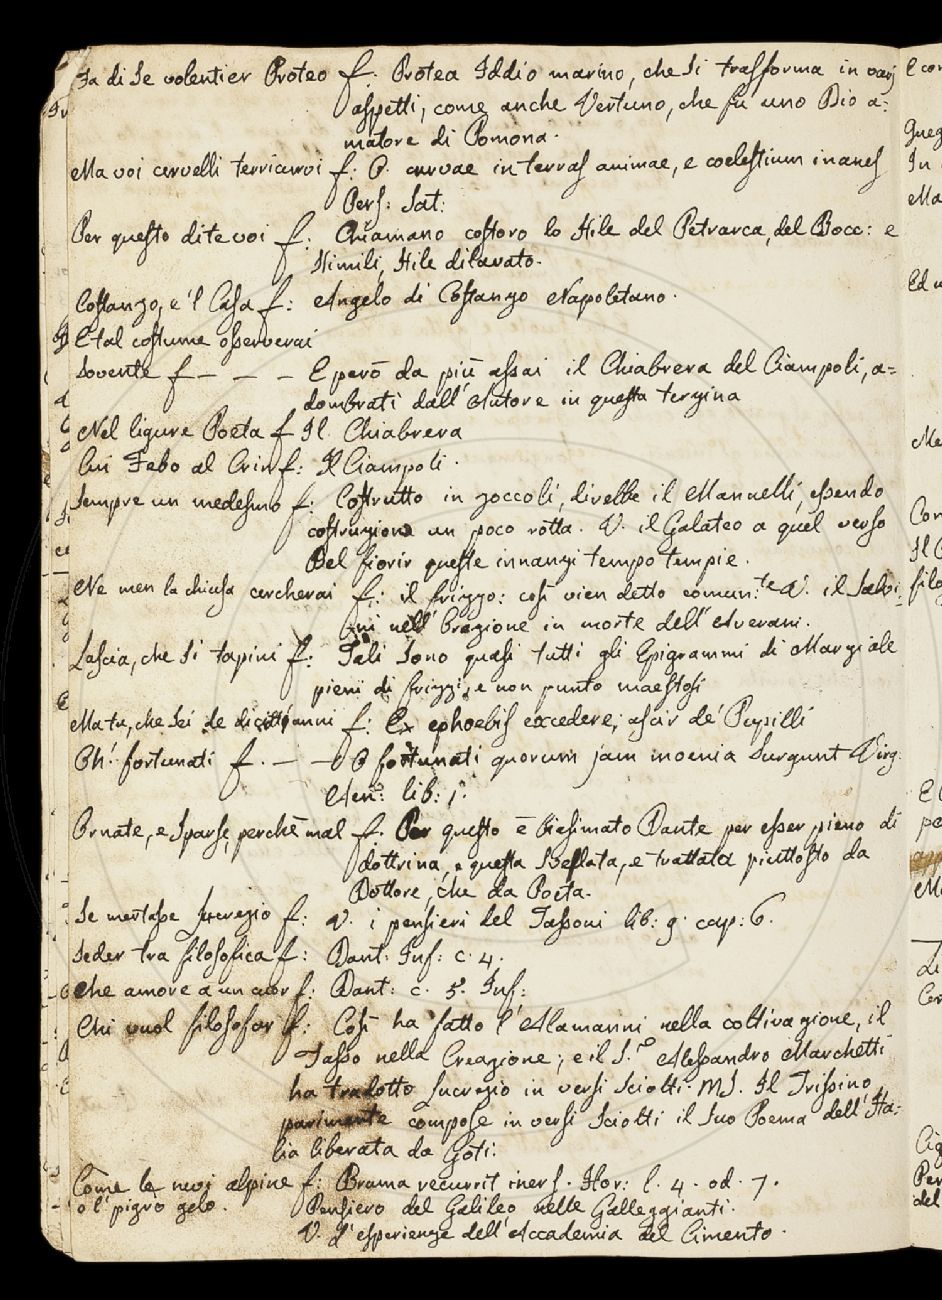 Fa di se volentier Proteo f: Protea Iddio marino, che si trasforma in varj
aspetti, come anche Vertuno, che fu uno Dio a=
matore di Pomona.
Ma voi cervelli terricurvi f: O curvae in terras animae, e coelestium inanes
Pers: Sat:
Per questo dite voi f: Chiamano costoro lo stile del Petrarca, del Bocc: e
simili, stile dilavato.
Costanzo, e 'l Casa f: Angelo di Costanzo Napoletano.
E tal costume osserverai
sovente f - - - E però da più assai il Chiabrera del Ciampoli, a=
dombrati dall'Autore in questa terzina
Nel ligure Poeta f Il Chiabrera
Cui Febo al Crin f: Il Ciampoli.
Sempre un medesmo f: Costrutto in zoccoli, direbbe il Mannelli, essendo
costruzione un poco rotta. V. il Galateo a quel verso
Del fiorir queste innanzi tempo tempie.
Ne men la chiusa cercherai f: il frizzo: così vien detto comun:te V. il Salvi:
ni nell'Orazione in morte dell'Averani.
Lascia, che si tapini f: Tali sono quasi tutti gli Epigrammi di Marziale
pieni di frizzi, e non punto maestosi
Ma tu, che sei de diciott'anni f: Ex ephoebis excedere; uscir de' Pupilli
Oh! fortunati f. - - O fortunati quorum jam moenia surgunt Virg.
Aen: lib: j.
Ornate, e sparse, perchè mal f. Per questo è biasimato Dante per esser pieno di
dottrina, e questa svelata, e trattata piuttosto da
Dottore, che da Poeta.
Se mertasse Lucrezio f: V. i pensieri del Tassoni lib: 9 cap: 6.
Seder tra filosofica f: Dant. Inf: c. 4.
Che amore a un cuor f: Dant: c. 5. Inf:
Chi vuol filosofar f: Così ha fatto l'Alamanni nella coltivazione, il
Tasso nella Creazione; e il S.re Alessandro Marchetti
ha tradotto Lucrezio in versi sciolti. MS. Il Trissino
parimente compose in versi sciolti il suo Poema dell'Ita:
lia liberata da Goti.
Come le nevi alpine f: Bruma recurrit iners. Hor: l. 4. od. 7.
o l' pigro gelo. Pensiero del Galileo nelle Galleggianti.
V. l'esperienze dell'Accademia del Cimento.